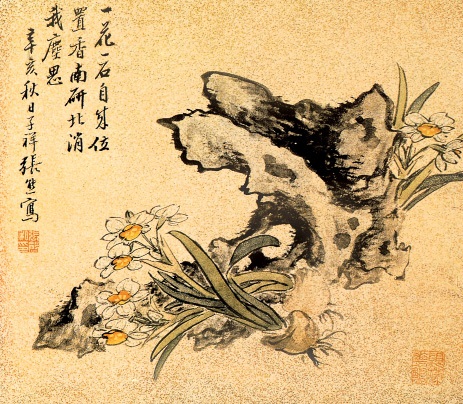 一花一石自成位
置香南研北消
我塵思
辛亥秋日子祥張熊寫